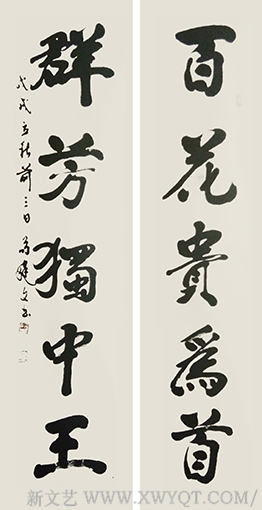 百花貴爲首
群芳獨中王
戊戌立秋前三日
新文艺 WWW.XWYQT.COM